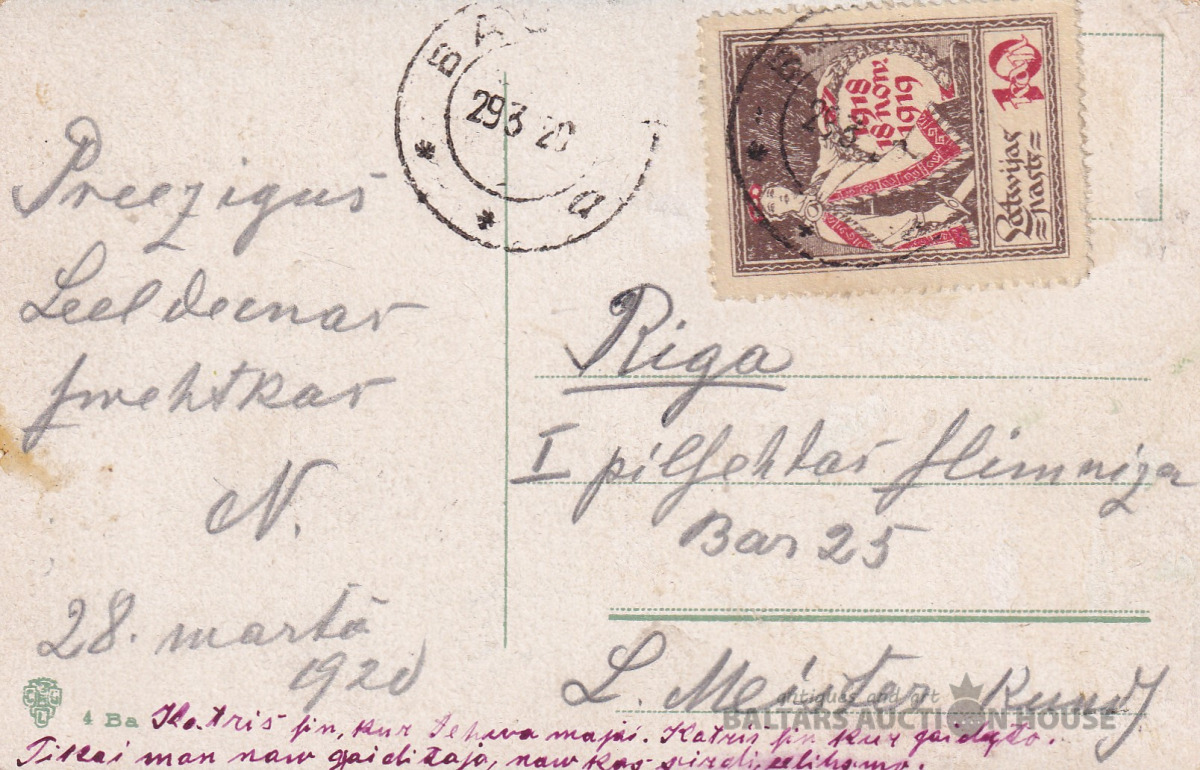 Preezigus
Leeldeenas
swehtkas
N.
28. martā
1920
29 3 20
1918
18 NOW.
1919
10
KAP
Latwijas
pasts
Riga
I pilsehtas slimniza
Bar 25
L. Meistar kundz
4 Ba
Katris sin, kur tehwa mahjas. Katris sin kur gaiditajs.
Tikai man naw gaiditaja, naw kas sirdi
antiques and art
BALTARS AUCTION HOUSE